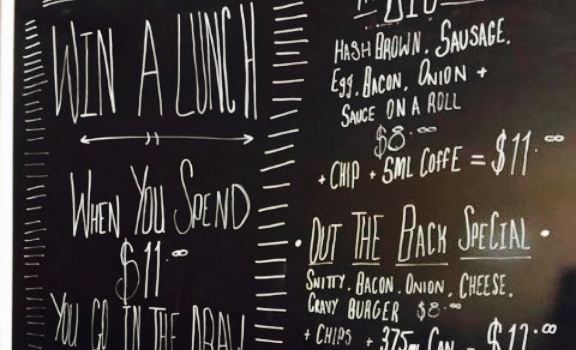 WIN A LUNCH
WHEN YOU SPEND
$11.00
YOU GO IN THE DRAW
BIG
HASH BROWN. SAUSAGE.
Egg. BACON. ONION +
SAUCE ON A ROLL
$8.00
+ CHIP + SML COFFE = $11.00
• OUT THE BACK SPECIAL •
SNITTY. BACON. ONION. CHEESE.
GRAVY BURGER $8.00
+ CHIPS + 375mL CAN =